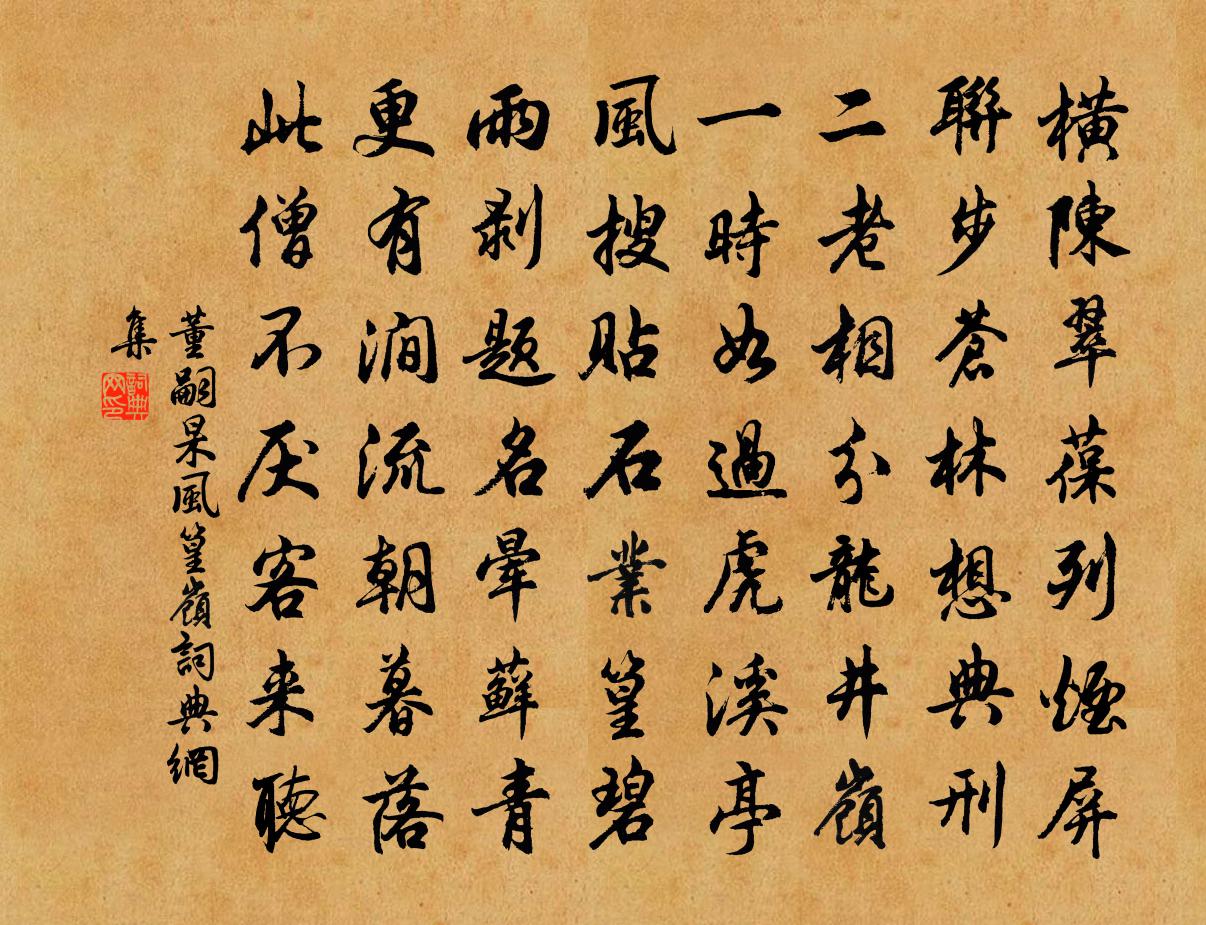 橫陳翠葆列煙屏
聯步蒼林想典刑
二老相分龍井嶺
一時如過虎溪亭
風搜貼石業篁碧
雨剥题名暈蘚青
更有澗流朝暮落
此僧不厌客来聽
董嗣杲風篁嶺詞典網
集
詞典
网印